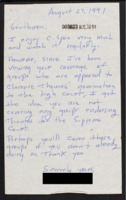 August 27, 1991
Gentlemen,
I enjoy C-Span very much
and watch it regularly.
However, since I've been
viewing your coverage of
groups who are opposed to
Clarence Thomas' nomination
to the Supreme Court, I got
the idea you are not
covering any groups endorsing
Thomas to the Supreme
Court.
Perhaps you'll cover those
groups if you aren't already
doing so. Thank you.
Sincerely yours,